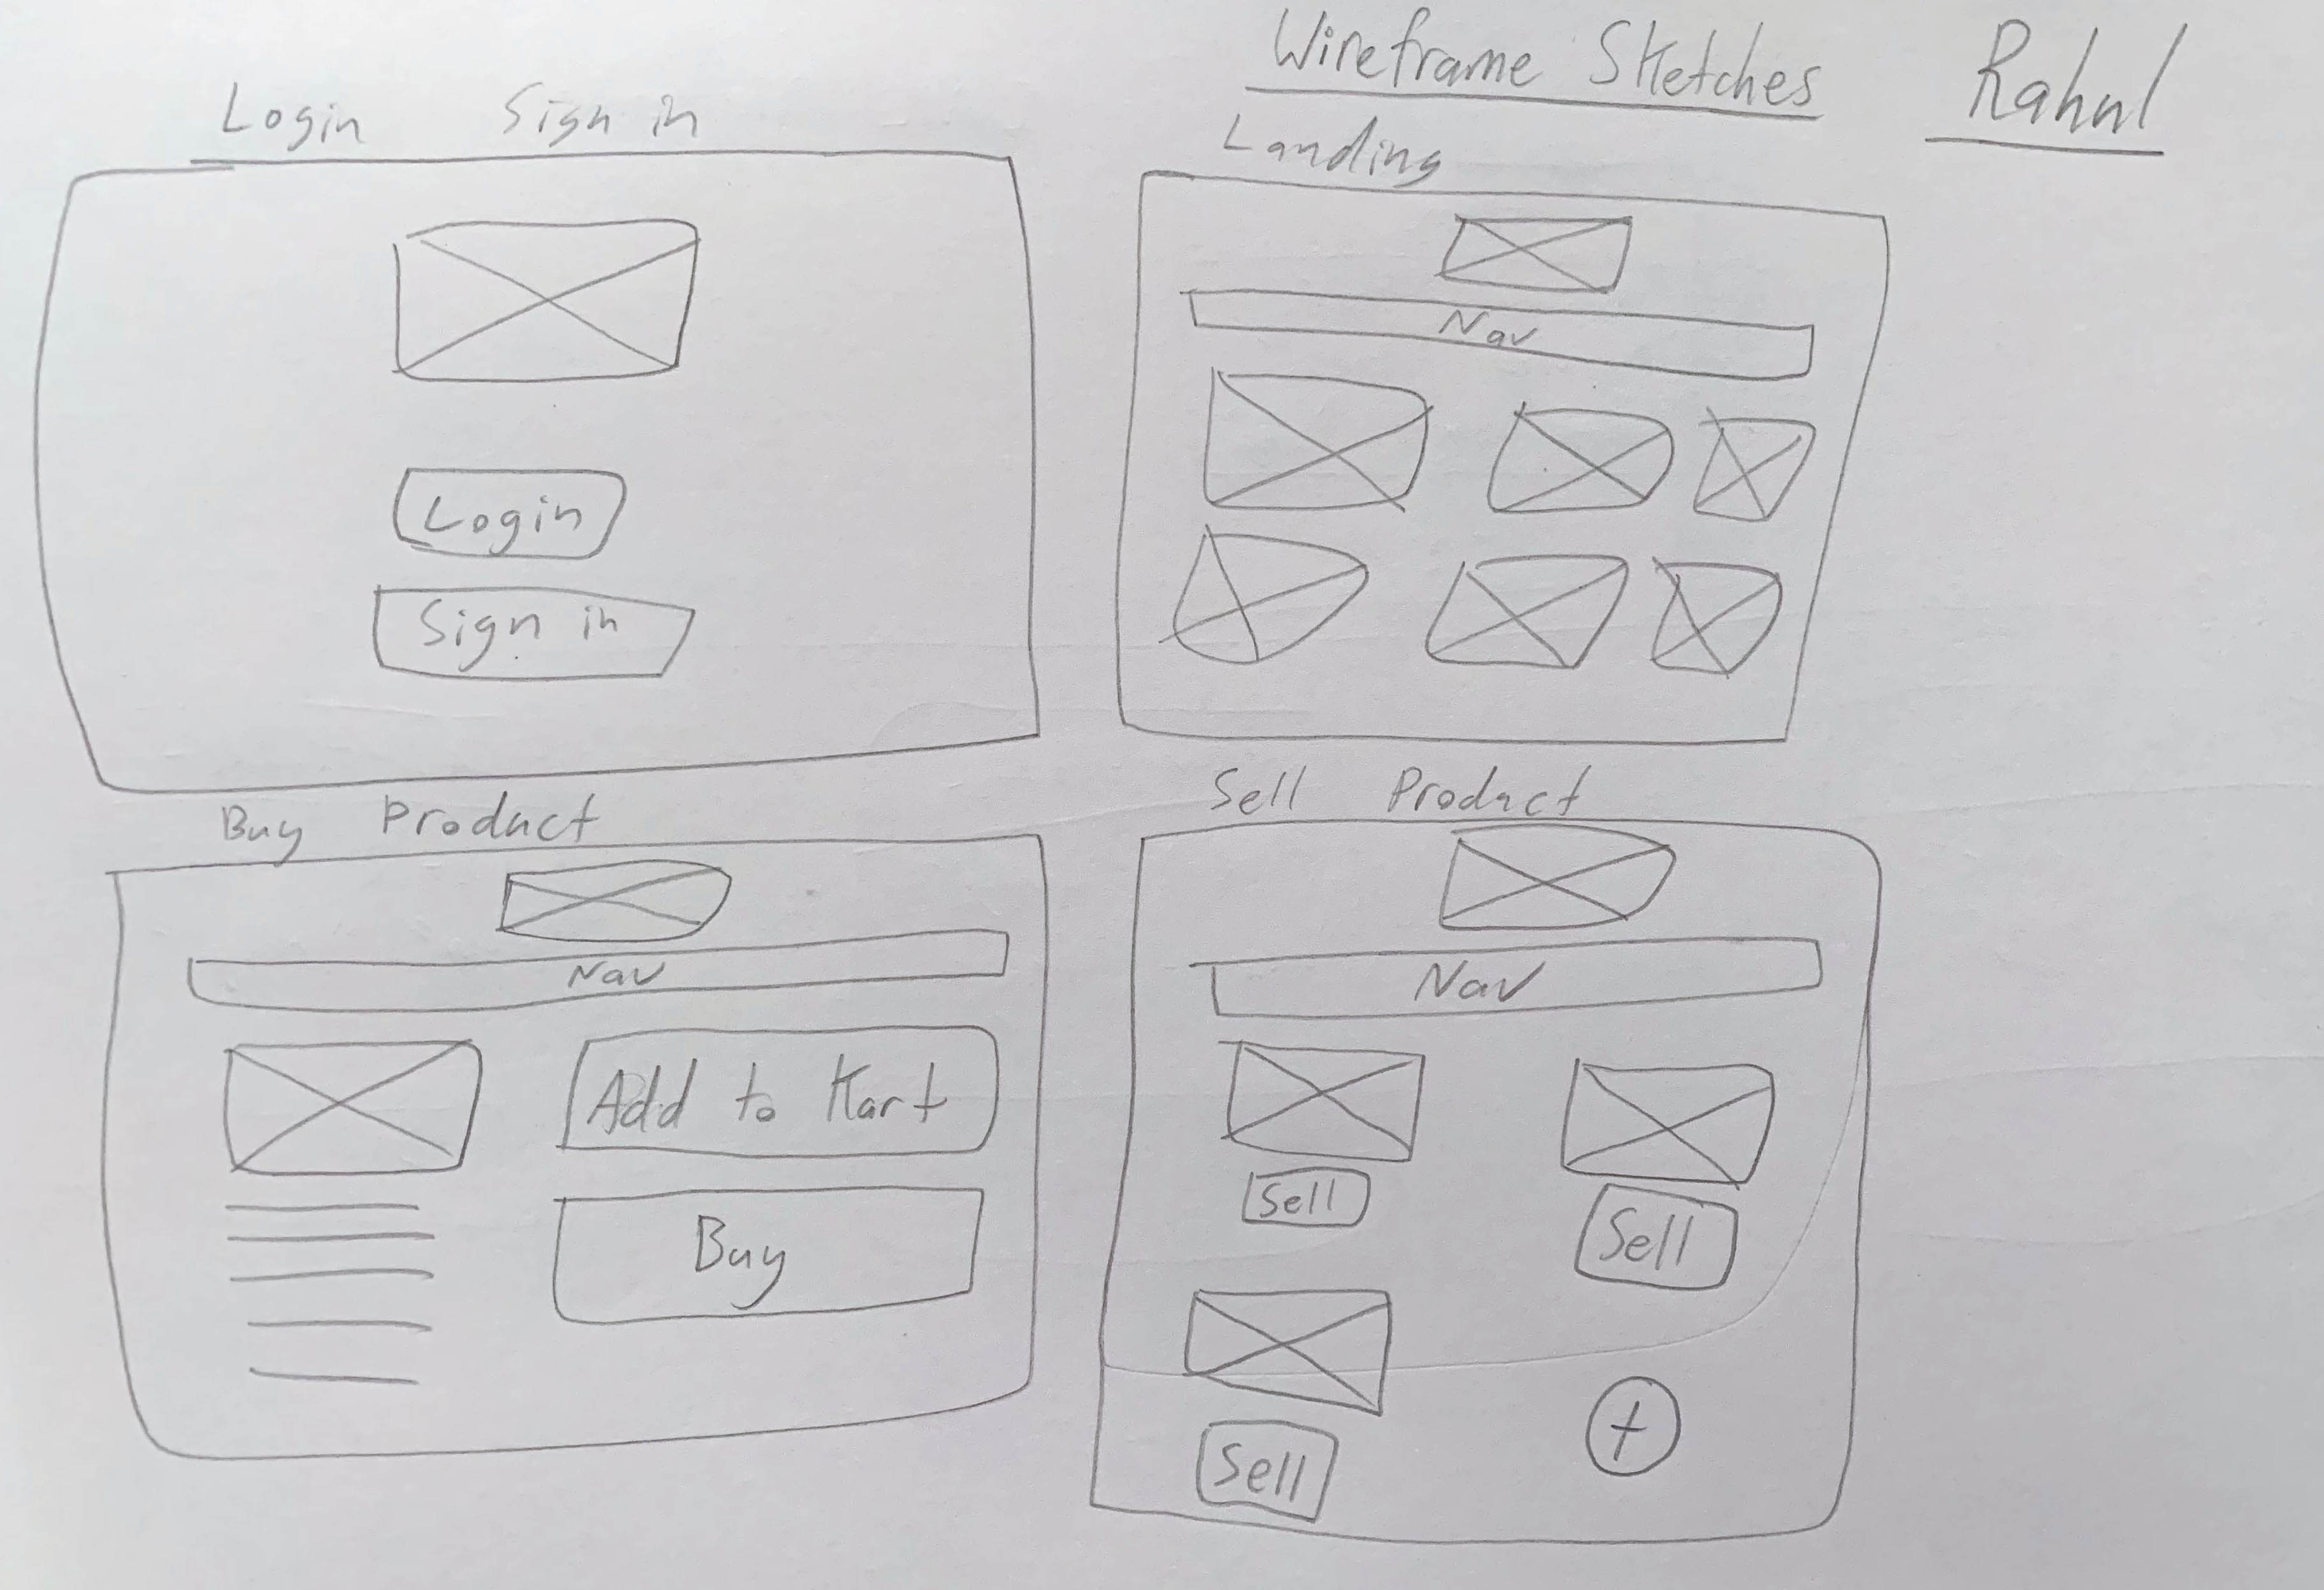 Wireframe Sketches Rahul
Login Sign in
Login
Sign in
Landing
Nav
Buy Product
Nav
Add to Kart
Buy
Sell Product
Nav
Sell
Sell
Sell
+